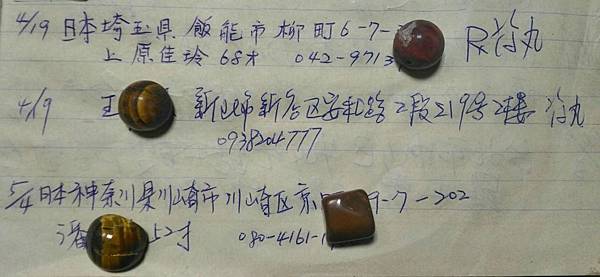 4/19 日本埼玉県飯能市柳町6-7-
上原佳玲 68才 042-9713 Rx 冷丸
4/19 王 新北市新店区安和路2段219号2楼 冷丸
0938204777
5/4 日本神奈川県川崎市川崎区京 9-7-202
潘 52才 080-4161-1